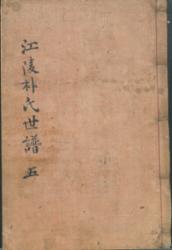 江陵朴氏世譜 五